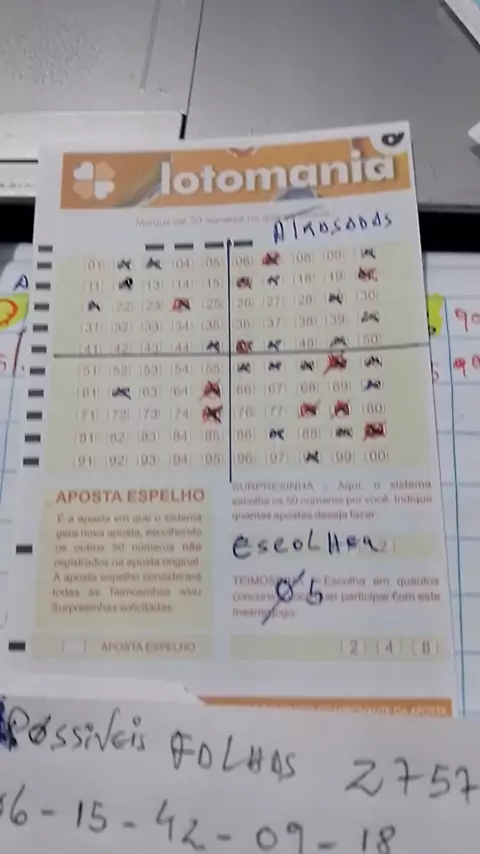 lotomania
Marque até 50 números
ATRASADAS
[01] [04] [05] [06] [08] [09]
[11] [13] [14] [15] [18] [19]
[22] [23] [25] [26] [27] [28] [30]
[31] [32] [33] [34] [35] [36] [37] [38] [39]
[41] [42] [43] [44] [48] [50]
[51] [52] [53] [54] [55]
[61] [63] [64] [66] [67] [68] [69]
[71] [72] [73] [74] [76] [77] [80]
[81] [82] [83] [84] [85] [86] [88]
[91] [92] [93] [94] [95] [96] [97] [99] [00]
APOSTA ESPELHO
É a aposta em que o sistema
gera nova aposta, escolhendo
os outros 50 números não
registrados na aposta original.
A aposta espelho considerará
todas as Teimosinhas e/ou
Surpresinhas solicitadas.
APOSTA ESPELHO
SURPRESINHA - Aqui, o sistema
escolhe os 50 números por você. Indique
quantas apostas deseja fazer:
escolher
Escolha em quantos
participar com este
mesmo jogo:
05
[2] [4] [8]
POSSIVEIS FOLHAS 2757
06-15-42-09-18
90
90